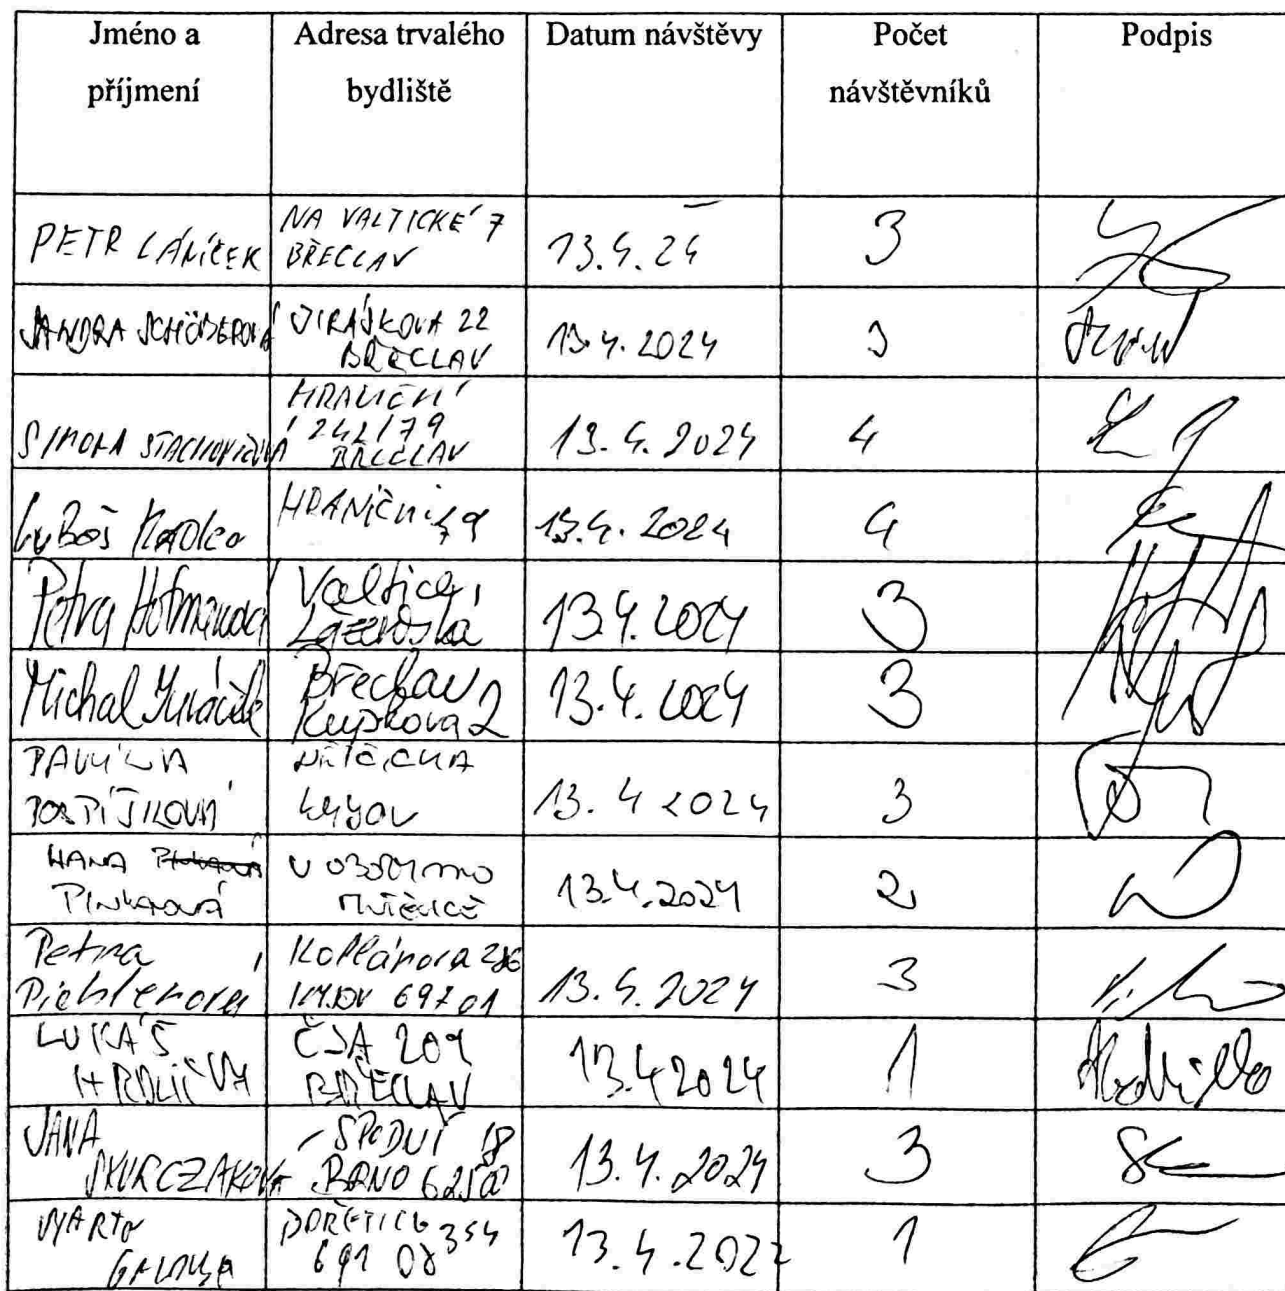 Jméno a
příjmení
Adresa trvalého
bydliště
Datum návštěvy
Počet
návštěvníků
Podpis
PETR LÁNÍČEK
NA VALTICKÉ 7
BŘECLAV
13.4.24
3
SANDRA SCHÖBEROVÁ
JIRÁSKOVA 22
BŘECLAV
13.4.2024
3
SIMONA STACHOVIČOVÁ
HRANIČNÍ
242/79
BŘECLAV
13.4.2024
4
LUBOŠ
HRANIČNÍ 79
13.4.2024
4
Petra Hofmanová
Valtice,
13.4.2024
3
Michal
Břeclav
Kupkova 2
13.4.2024
3
PAVLÍNA
POSPÍŠILOVÁ
KYJOV
13.4 2024
3
HANA
V OBORY
13.4.2024
2
Petra
Pichlerová
Kollárova
KYJOV 697 01
13.4.2024
3
LUKÁŠ
HRDLIČKA
ČSA 209
BŘECLAV
13.4 2024
1
JANA
SKURCZAKOVÁ
BRNO 625 00
13.4.2024
3
MARTA
BOŘETICE 354
691 08
13.4.2022
1